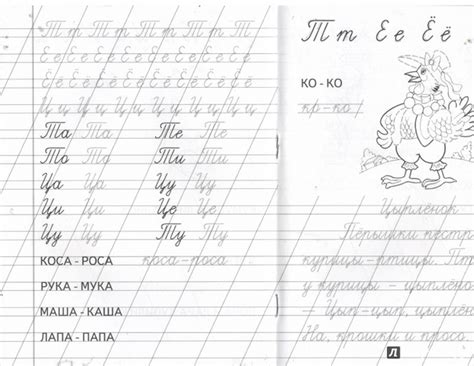 Т т Т т Т т Т т
Е е Е е Е е Е е Е е
Ё ё Ё ё Ё ё Ё ё Ё ё
Ц ц Ц ц Ц ц Ц ц Ц ц
Та Та Те Те
То То Ти Ти
Ца Ца Цу Цу
Ци Ци Це Це
Цу Цу Ту Ту
КОСА - РОСА коса-роса
РУКА - МУКА
МАША - КАША
ЛАПА - ПАПА
Т т Е е Ё ё
КО - КО
ко-ко
Цыплёнок
Пёрышки пестр
курицы-птицы. Пт
у курицы - цыплёно
- Цып-цып, цыплён
На, крошки и просо
Л